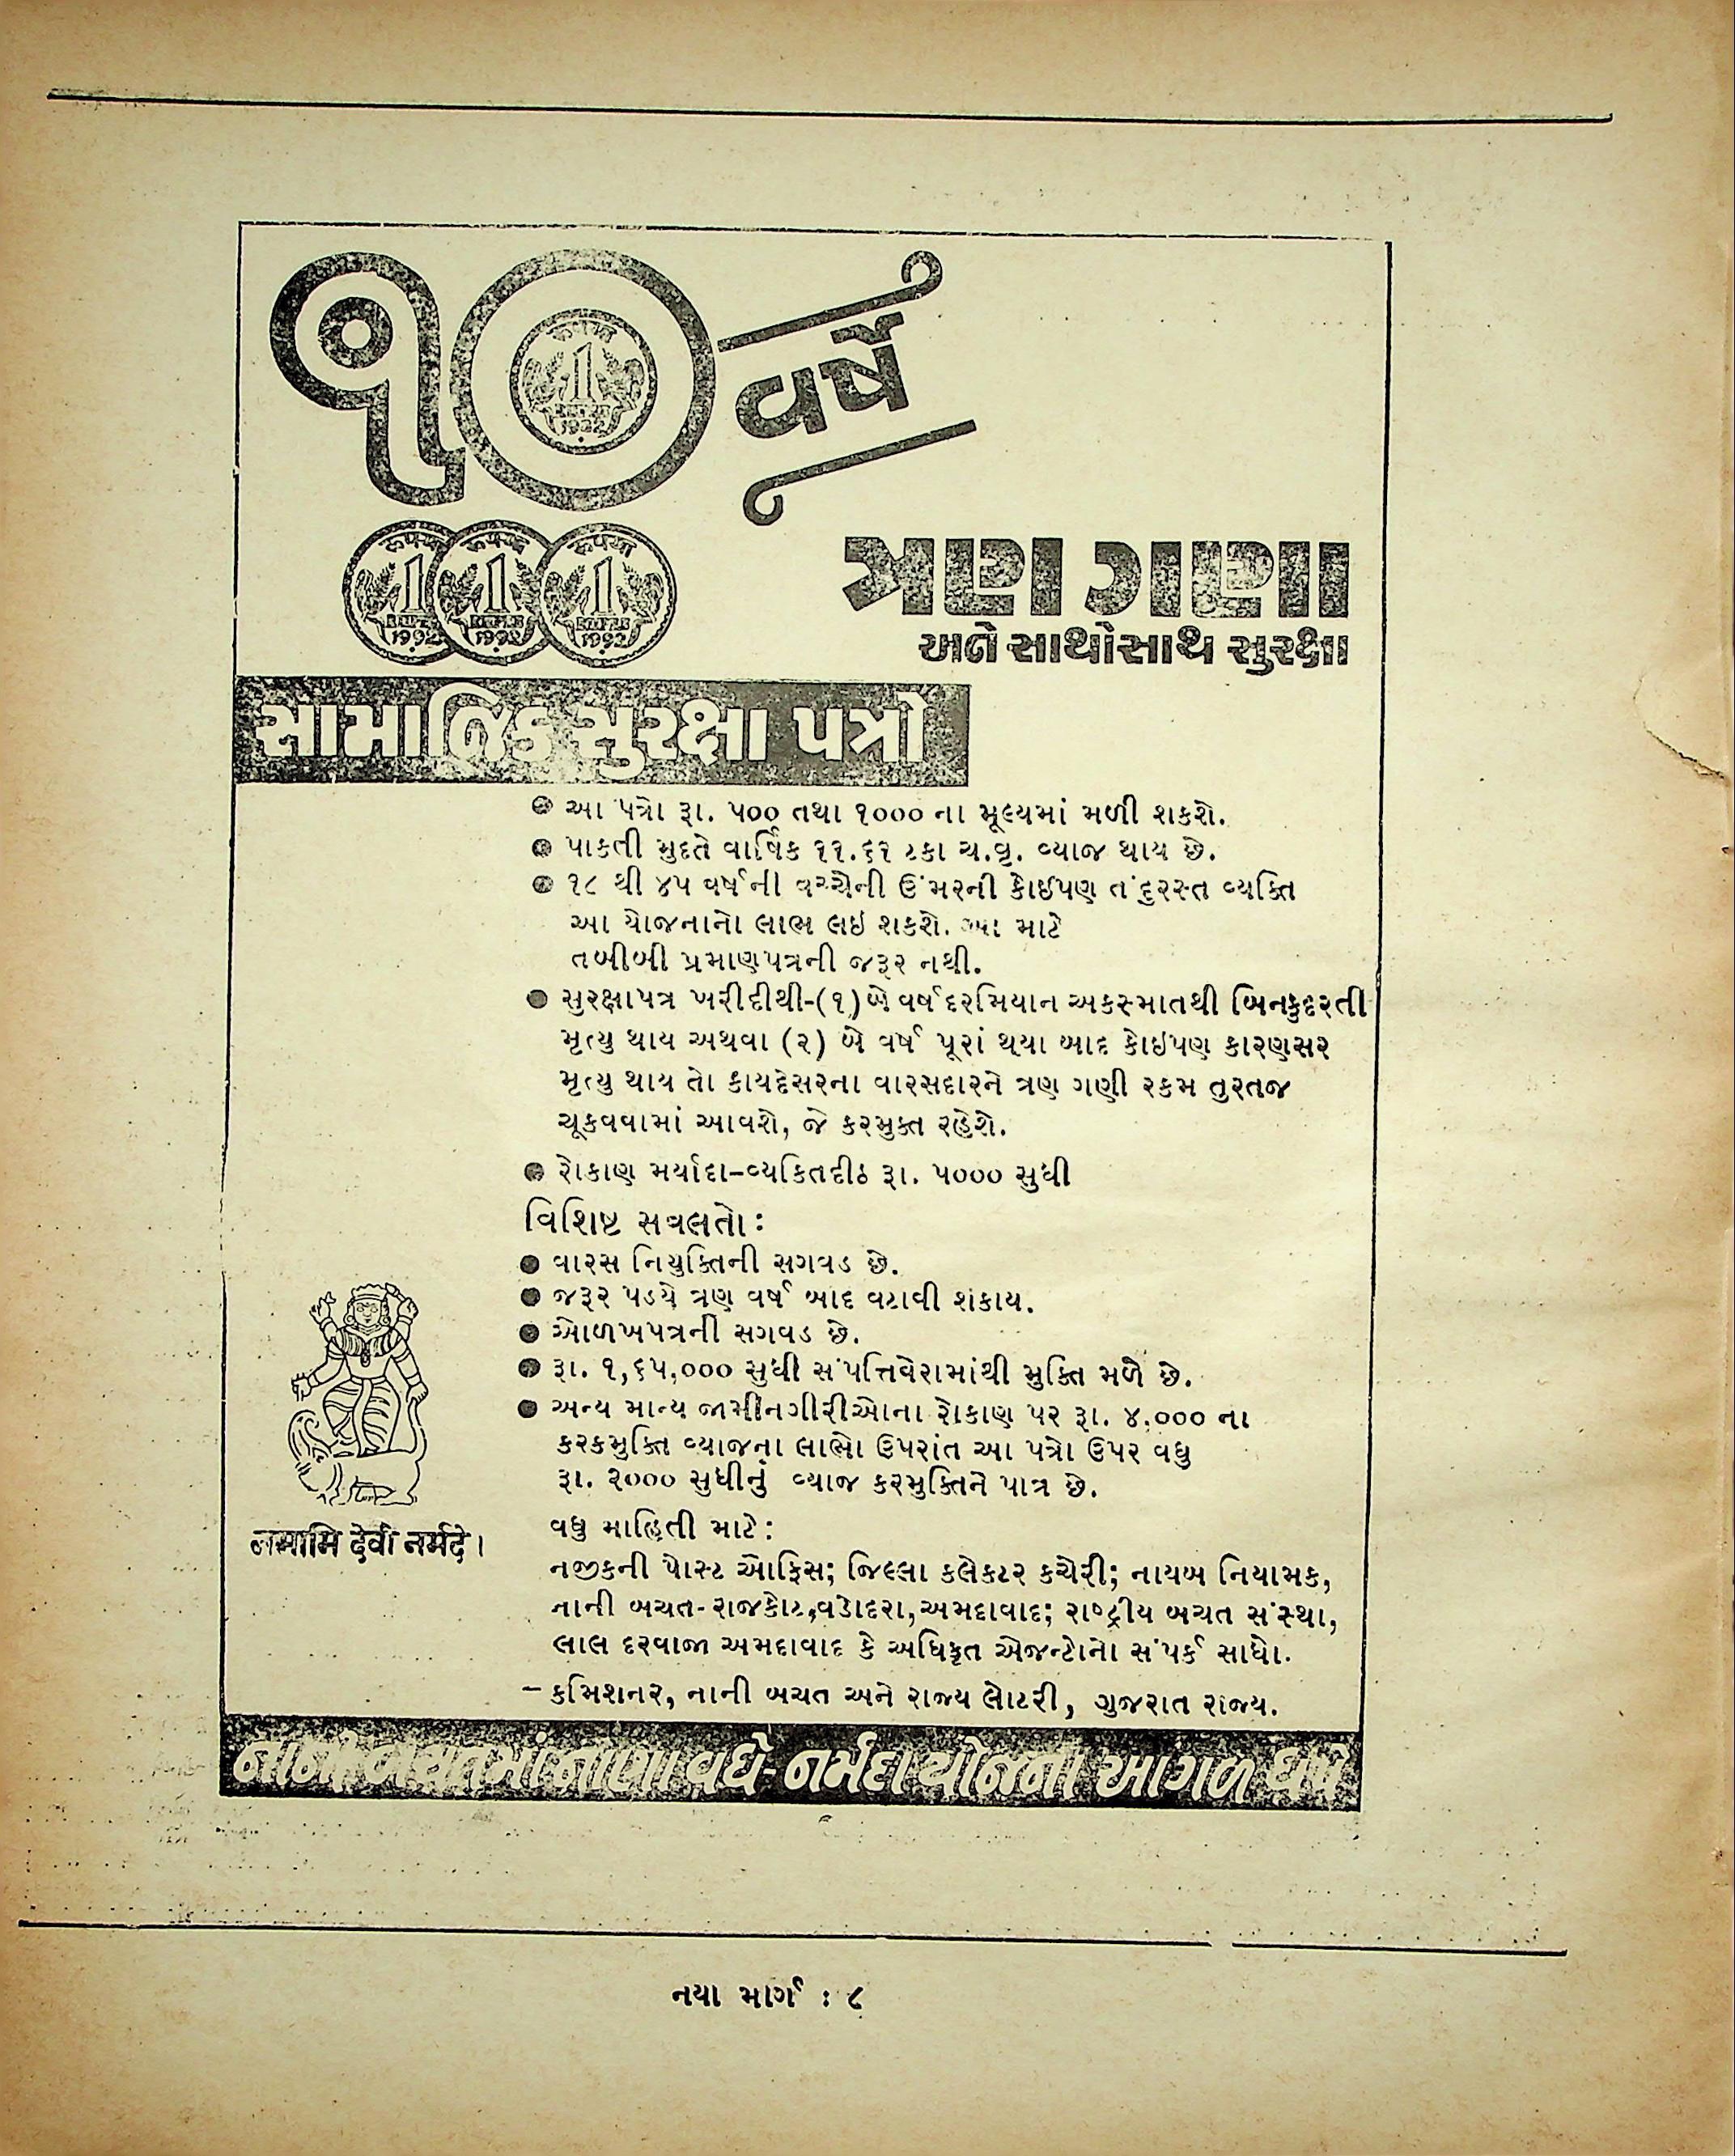 ૧૦ વર્ષે
रूपया
1
1982
रूपया रूपया रूपया
1 1 1
RUPEE RUPEE RUPEE
1992 1992 1992
ત્રણ ગણા
અને સાથોસાથ સુરક્ષા
સામાજિક સુરક્ષા પત્રો
આ પત્રો રૂા. ૫૦૦ તથા ૧૦૦૦ ના મૂલ્યમાં મળી શકશે.
પાકતી મુદતે વાર્ષિક ૧૧.૬૧ ટકા ચ.વૃ. વ્યાજ થાય છે.
૧૮ થી ૪૫ વર્ષની વચ્ચેની ઉંમરની કોઈપણ તંદુરસ્ત વ્યક્તિ
આ યોજનાનો લાભ લઇ શકશે. આ માટે
તબીબી પ્રમાણપત્રની જરૂર નથી.
સુરક્ષાપત્ર ખરીદીથી-(૧) બે વર્ષ દરમિયાન અકસ્માતથી બિનકુદરતી
મૃત્યુ થાય અથવા (૨) બે વર્ષ પૂરાં થયા બાદ કોઇપણ કારણસર
મૃત્યુ થાય તો કાયદેસરના વારસદારને ત્રણ ગણી રકમ તુરતજ
ચૂકવવામાં આવશે, જે કરમુક્ત રહેશે.
રોકાણ મર્યાદા-વ્યકિતદીઠ રૂા. ૫૦૦૦ સુધી
વિશિષ્ટ સવલતો :
વારસ નિયુક્તિની સગવડ છે.
જરૂર પડયે ત્રણ વર્ષ બાદ વટાવી શકાય.
ઓળખપત્રની સગવડ છે.
રૂા. ૧,૬૫,૦૦૦ સુધી સંપત્તિવેરામાંથી મુક્તિ મળે છે.
અન્ય માન્ય જામીનગીરીઓના રોકાણ પર રૂા. ૪,૦૦૦ ના
કરકમુક્તિ વ્યાજના લાભો ઉપરાંત આ પત્રો ઉપર વધુ
રૂા. ૨૦૦૦ સુધીનું વ્યાજ કરમુક્તિને પાત્ર છે.
नमामि देवी नर्मदे ।
વધુ માહિતી માટે :
નજીકની પોસ્ટ ઓફિસ; જિલ્લા કલેકટર કચેરી; નાયબ નિયામક,
નાની બચત- રાજકોટ,વડોદરા,અમદાવાદ; રાષ્ટ્રીય બચત સંસ્થા,
લાલ દરવાજા અમદાવાદ કે અધિકૃત એજન્ટોનો સંપર્ક સાધો.
- કમિશનર, નાની બચત અને રાજ્ય લોટરી, ગુજરાત રાજ્ય.
નાની બચતમાં નાણા વધે- નર્મદા યોજના આગળ ધપે
નયા માર્ગ : ૮